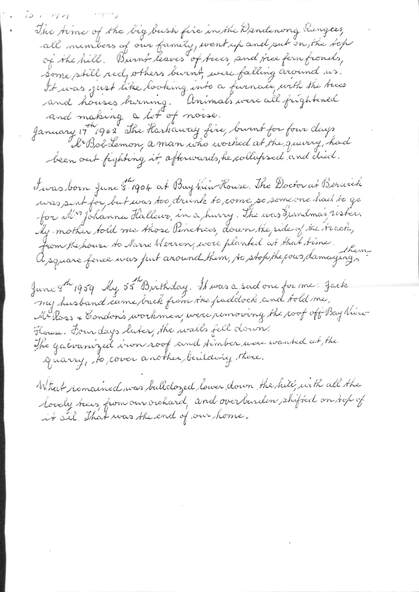 The time of the big bush fire in the Dandenong Ranges,
all members of our family, went up and sat on the top
of the hill. Burnt leaves of trees, and tree fern fronds,
some still red, others burnt, were falling around us.
It was just like looking into a furnace, with the trees
and houses burning. Animals were all frightened
and making a lot of noise.
January 17th 1962 The Harkaway fire, burnt for four days
Bob Lemon, a man who worked at the quarry, had
been out fighting it, afterwards, he collapsed and died.
I was born June 5th 1904 at Bay View House. The Doctor at Berwick
was sent for, but was too drunk to come, so someone had to go
for Mrs Johanna Hillow, in a hurry. She was Grandmas sister.
My mother told me those Pinetrees, down the side of the track,
from the house to Narre Warren, were planted at that time
A square fence was put around them, to stop the cows, damaging them
June 5th 1959 My 55th Birthday. It was a sad one for me. Jack
my husband came back from the paddock and told me,
Mr Ross & Condon's workmen, were removing the roof off Bay View
House. Four days later, the walls fell down.
The galvanized iron roof and timber were wanted at the
quarry, to cover another building there.
What remained was bulldozed lower down the hill, with all the
lovely trees from our orchard, and overburden, shifted on top of
it all That was the end of our home.